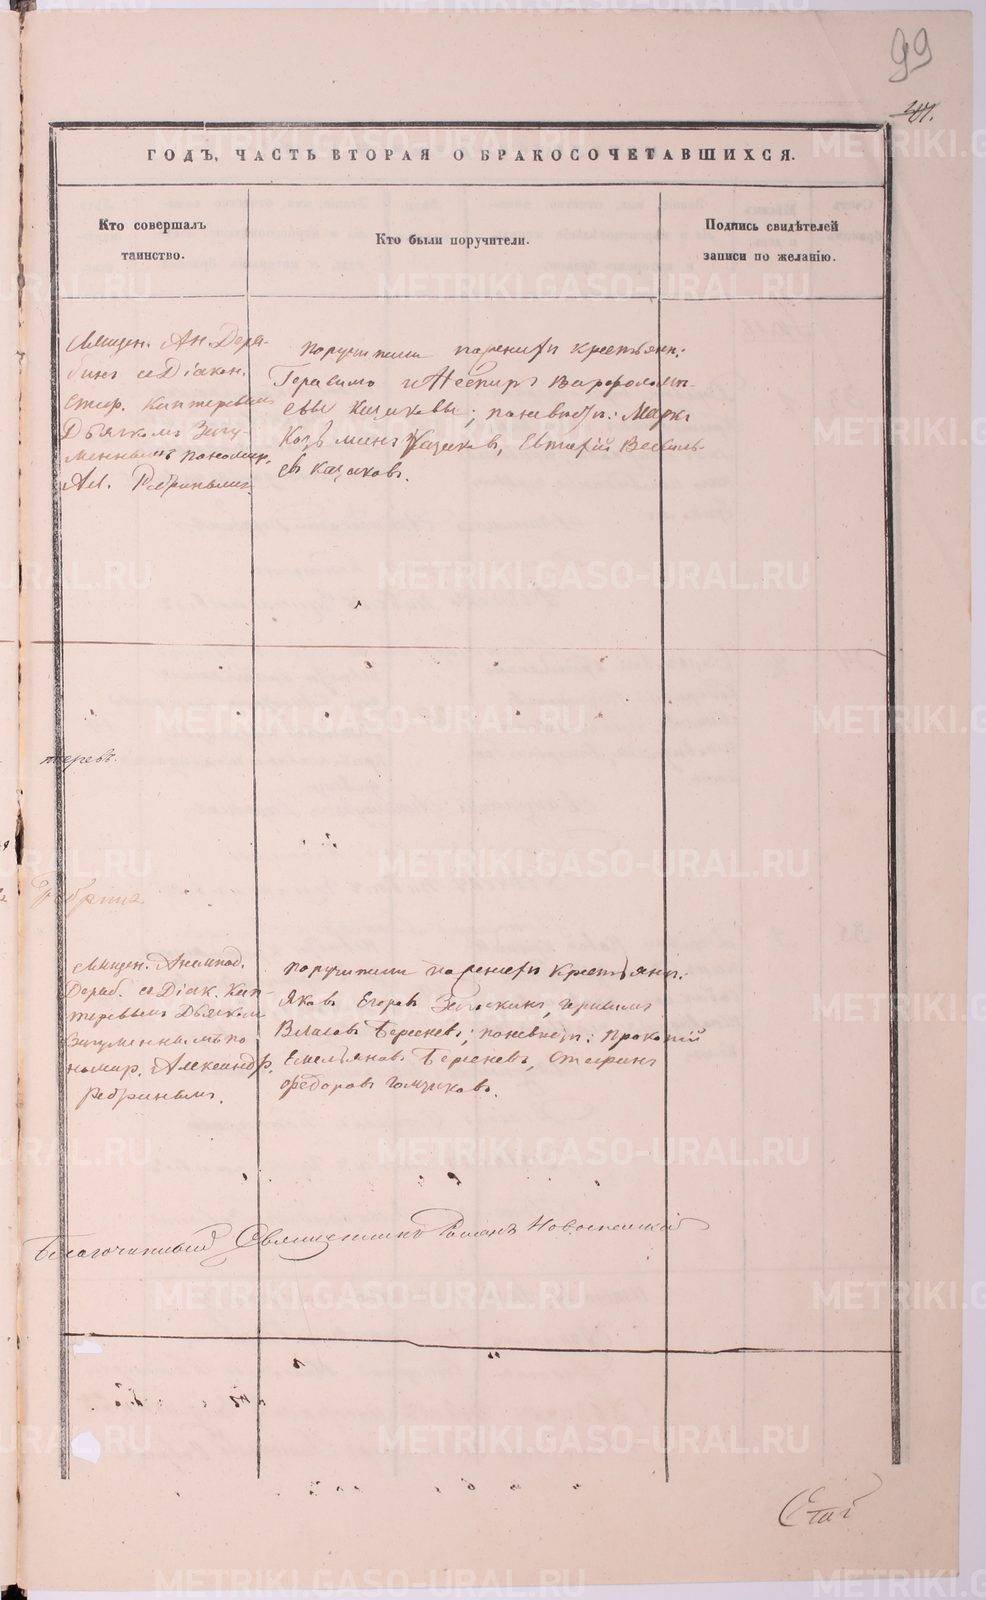 99
ГОДЪ, ЧАСТЬ ВТОРАЯ О БРАКОСОЧЕТАВШИХСЯ.
Кто совершалъ
таинство.
Кто были поручители.
Подпись свидѣтелей
записи по желанію.
Священ. Ан. Деря-
бинъ съ Діакон.
Стеф. Каптеревымъ
Дьячкомъ Загу-
меннымъ пономар.
Ал. Ребринымъ.
поручители по жениху крестьяне:
Герасимъ и Несторъ Варфоломе-
евы Казаковы; по невѣстѣ: Маркъ
Козьминъ Казаковъ, Евгафій Василь-
евъ Казаковъ.
птеревъ.
Ребрина
Священ. Анемпод.
Деряб. съ Діак. Кап-
теревымъ Дьячком
Загуменнымъ по
номар. Александр.
Ребринымъ.
поручители по жениху крестьяне:
Яковъ Егоровъ
Власовъ Береневъ; по невѣстѣ: Прокопій
Емельяновъ Береневъ, Стефанъ
Федоровъ
Благочинный Священникъ Романъ Новоспасскій
METRIKI.GASO-URAL.RU